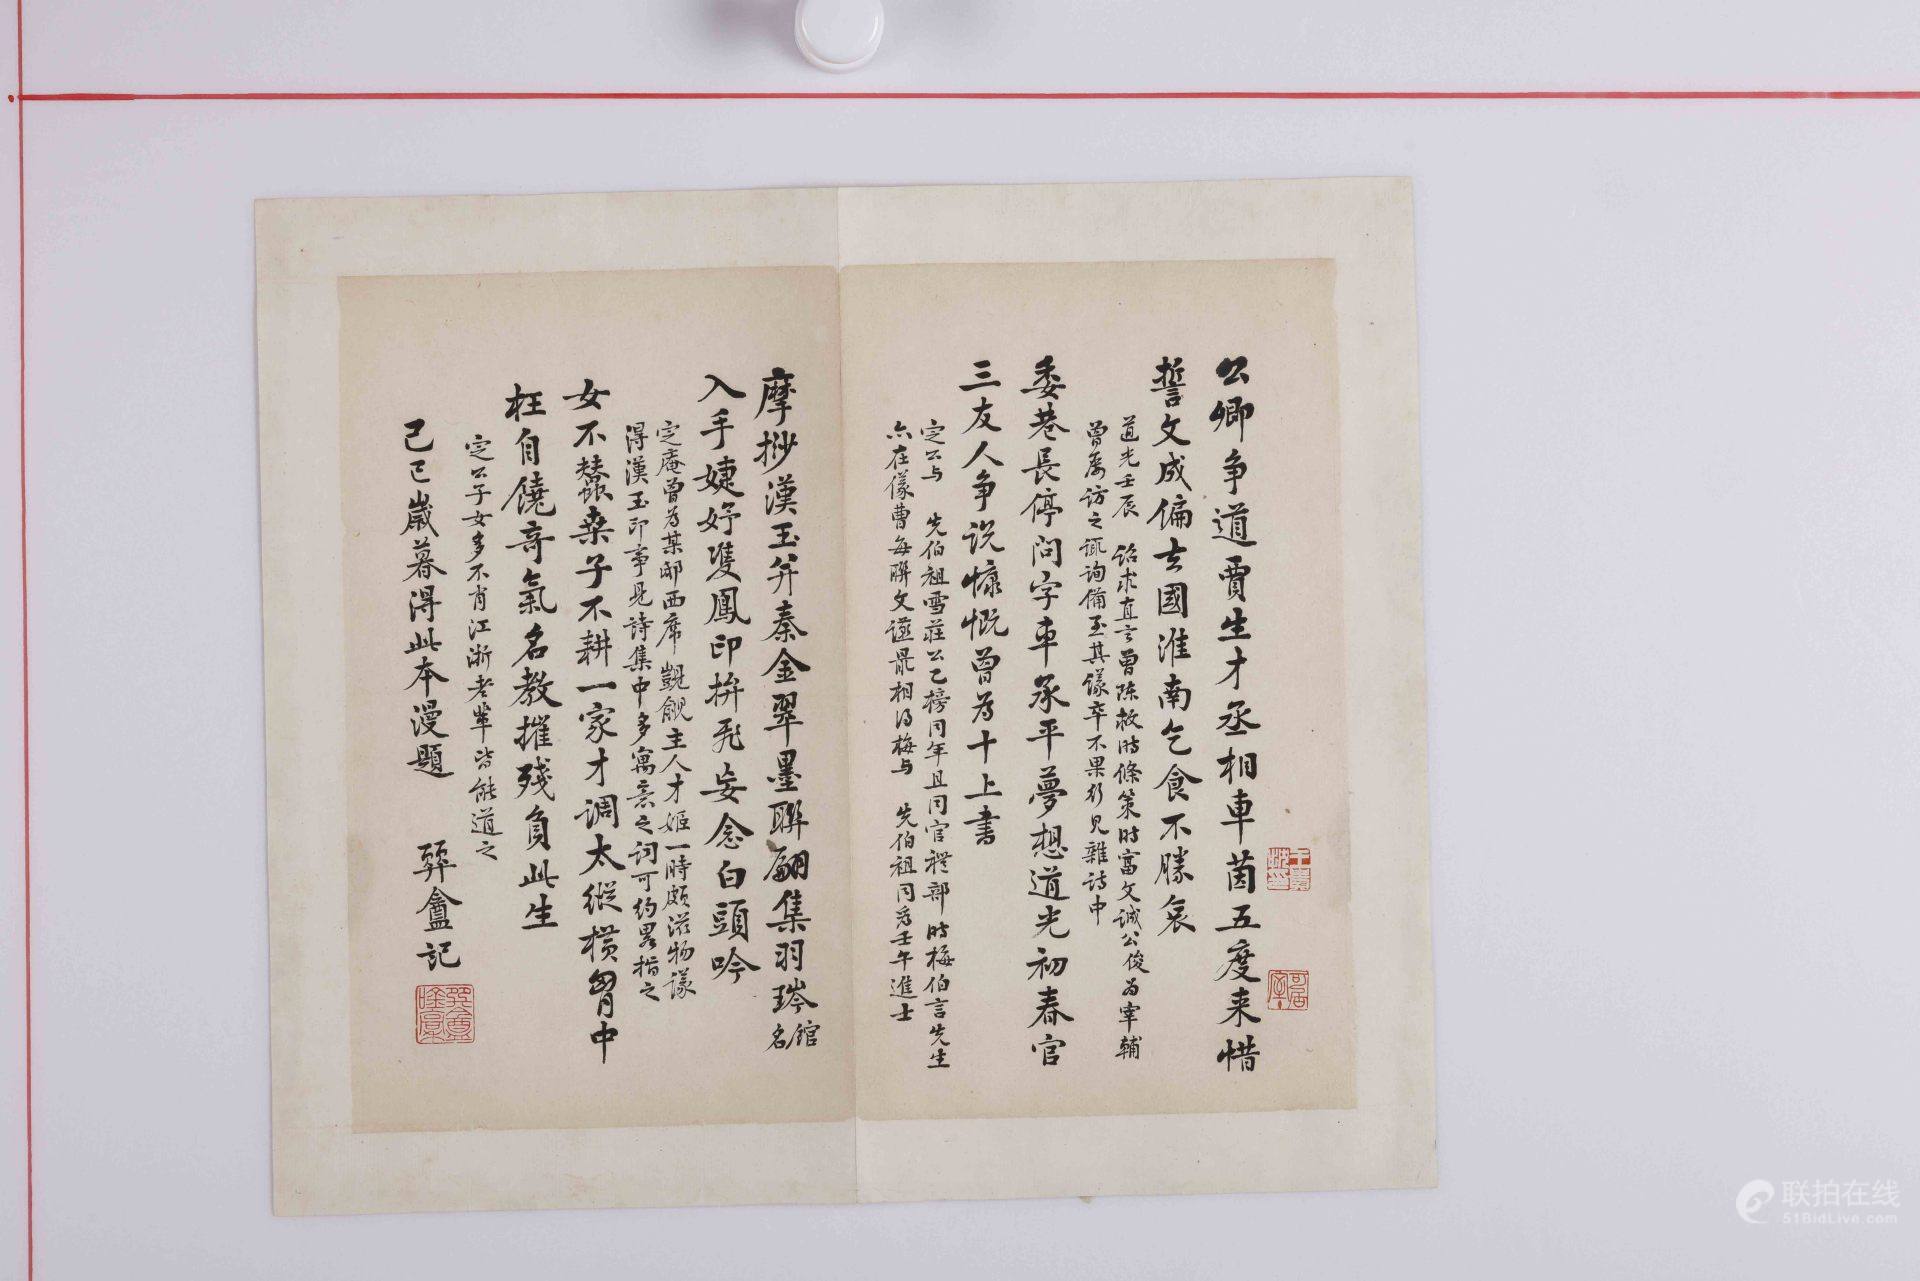 公卿争道賈生才丞相車茵五度来惜
誓文成偏去國淮南乞食不勝哀
道光壬辰 詔求直言曾陈救时條策时富文誠公俊为宰輔
曾屡访之諏詢備至其議卒不果行見雜詩中
委巷長停問字車承平夢想道光初春官
三友人争说慷慨曾为十上書
定公与 先伯祖雪莊公乙榜同年且同官禮部时梅伯言先生
亦在儀曹每聯文讌最相得梅与 先伯祖同为壬午進士
摩挱漢玉并秦金翠墨聯翩集羽琌館名
入手婕妤隻鳳印拚死妄念白頭吟
定庵曾为某邸西席覬覦主人才姬一時頗滋物議
得漢玉印事見詩集中多寓意之词可约畧指之
女不蠶桑子不耕一家才调太縱横胷中
枉自饒奇氣名教摧殘負此生
定公子女多不肖江浙老輩皆能道之
己巳歲暮得此本漫題 彝盦記
联拍在线
51BidLive.com